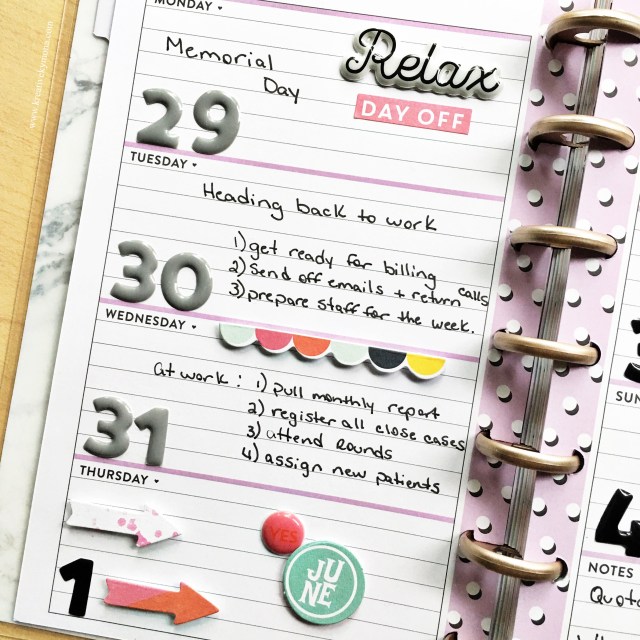 MONDAY
Memorial
Day
Relax
DAY OFF
29
TUESDAY
Heading back to work
1) get ready for billing
2) Send off emails + return calls
3) prepare staff for the week.
30
WEDNESDAY
at work: 1) pull monthly report
2) register all close cases
3) attend Rounds
4) assign new patients
31
THURSDAY
YES
JU
NE
1
SUN
4
NOTES
Quot